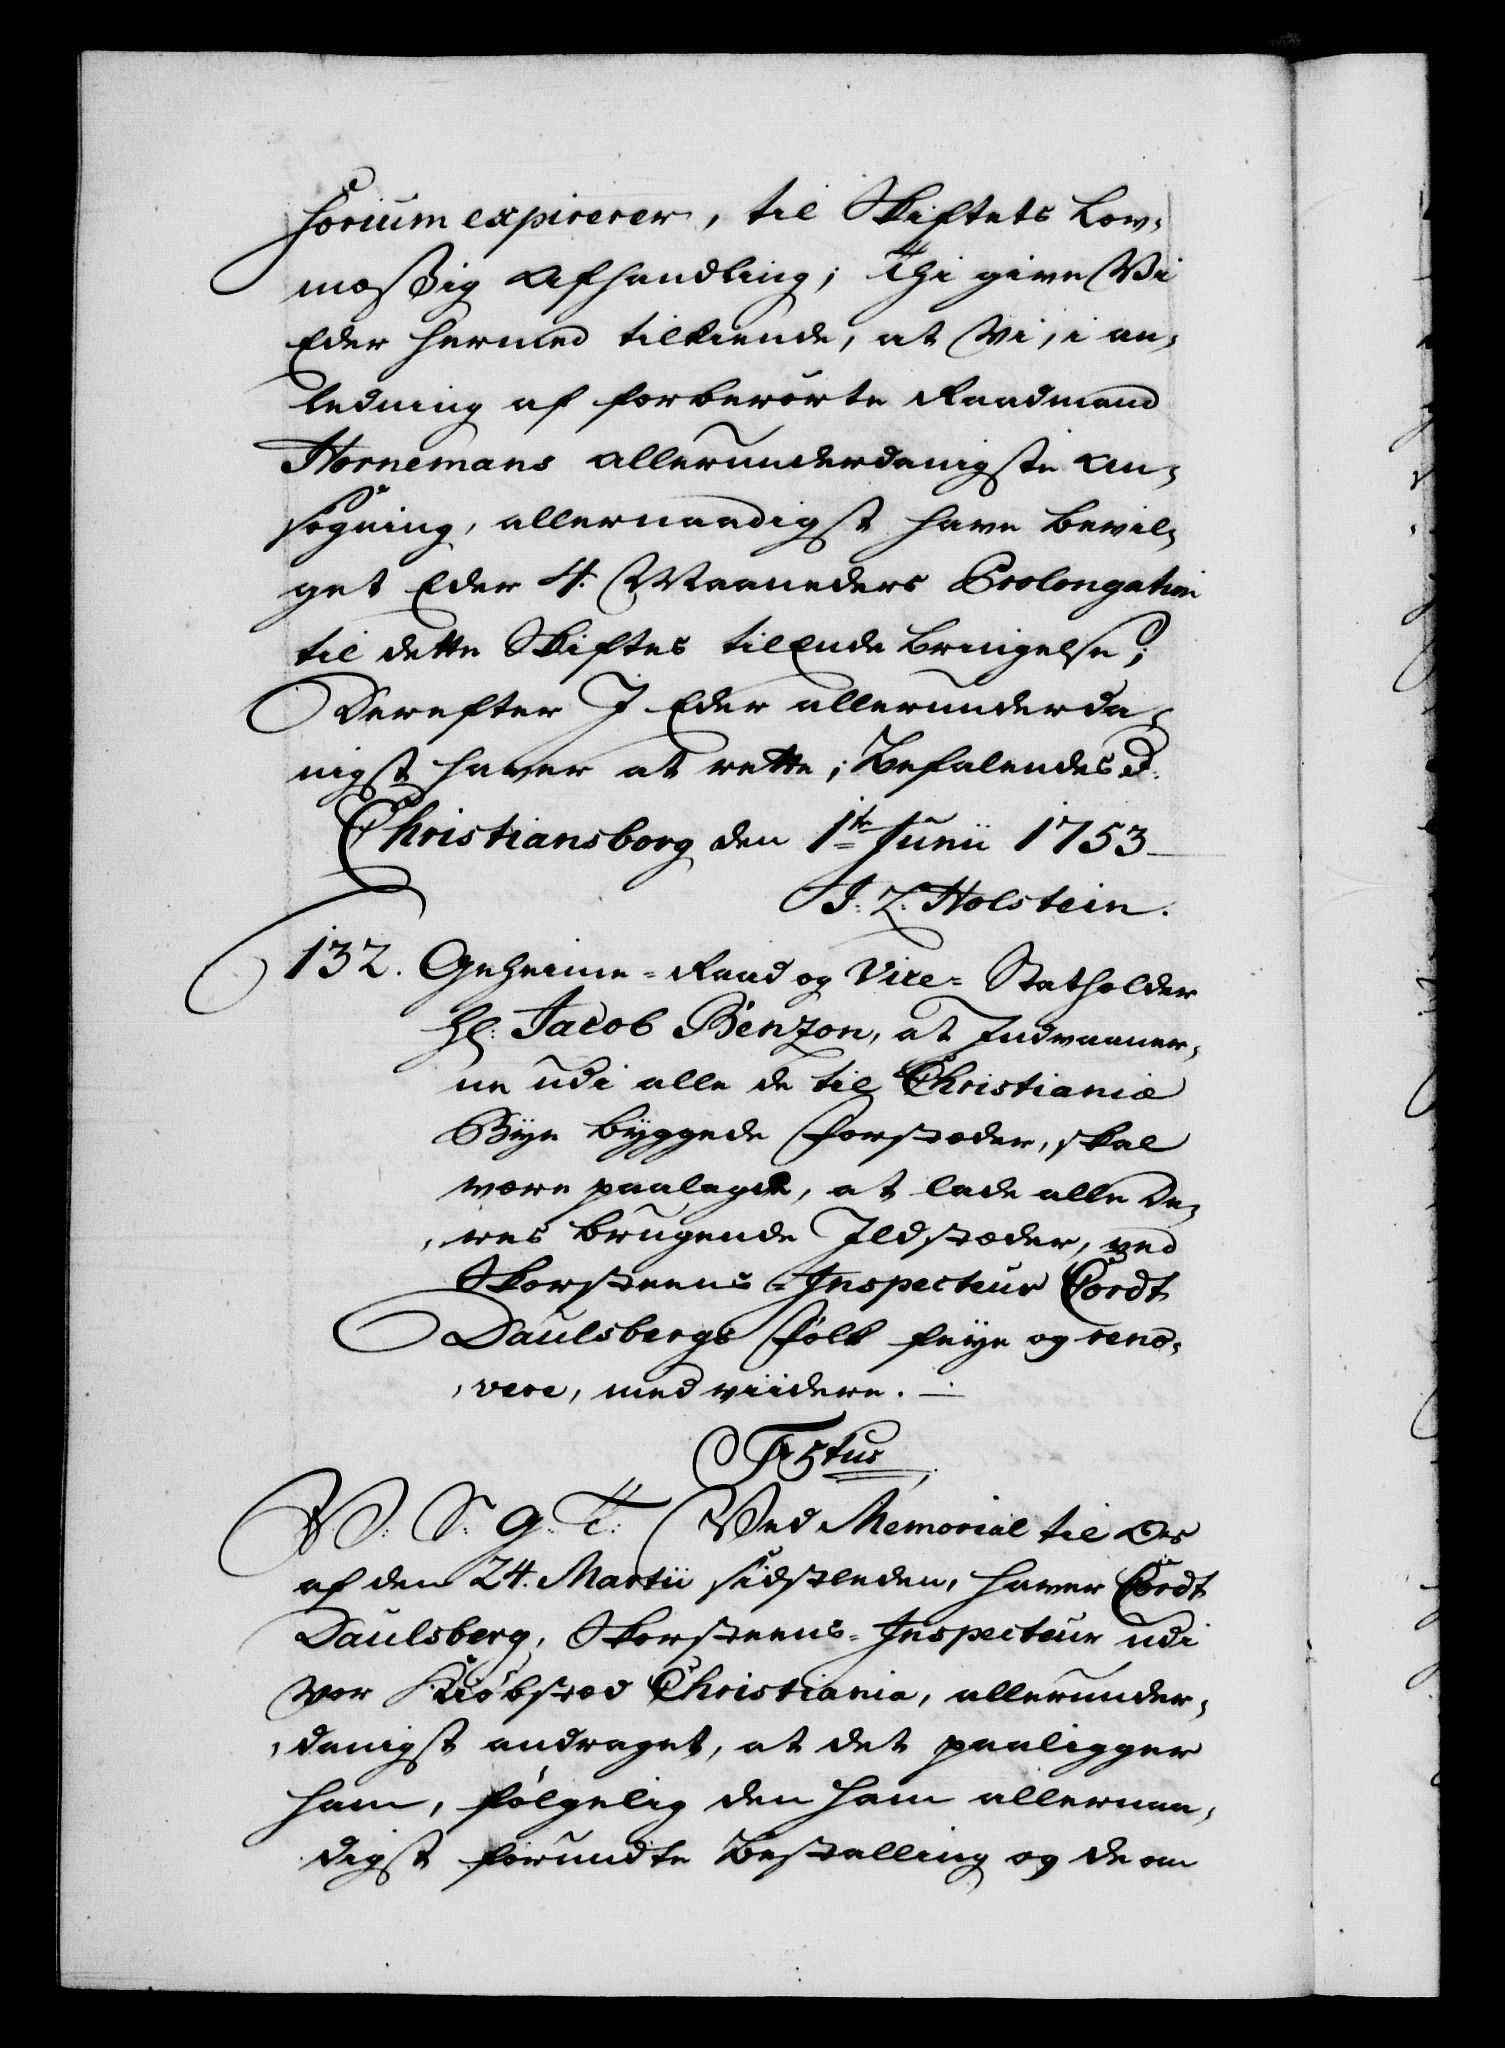 sorium expirerer, til Skiftets Lov-
mæssig Afhandling; Thi give Vi
Eder hermed tilkiende, at Vi, i an-
ledning af forberørte Raadmand
Hornemans allerunderdanigste An-
søgning, allernaadigst have bevil-
get Eder 4. Maaneders Prolongation
til dette Skiftes tilEnde bringelse;
Derefter I Eder allerunderda-
nigst haver at rette; Befalendes d:
Christiansborg den 1te Junii 1753
J: L: Holstein.
132. Geheime-Raad og Vice-Statholder
Hl: Jacob Benzon, at Indvaaner-
ne udi alle de til Christianiæ
Bye byggede Forstæder, skal
være paalagde, at lade alle De-
res brugende Ildstæder, ved
Skorsteens-Inspecteur Cordt
Daulsbergs Folk feye og reno-
vere, med viidere.
F5tus
V: S: G: T: Ved Memorial til Os
af den 24. Martii sidstleden, haver Cordt
Daulsberg, Skorsteens-Inspecteur udi
Vor Kiøbstæd Christiania, allerunder-
danigst andraget, at det paaligger
ham, følgelig den ham allernaa-
digst forundte Bestalling og de om